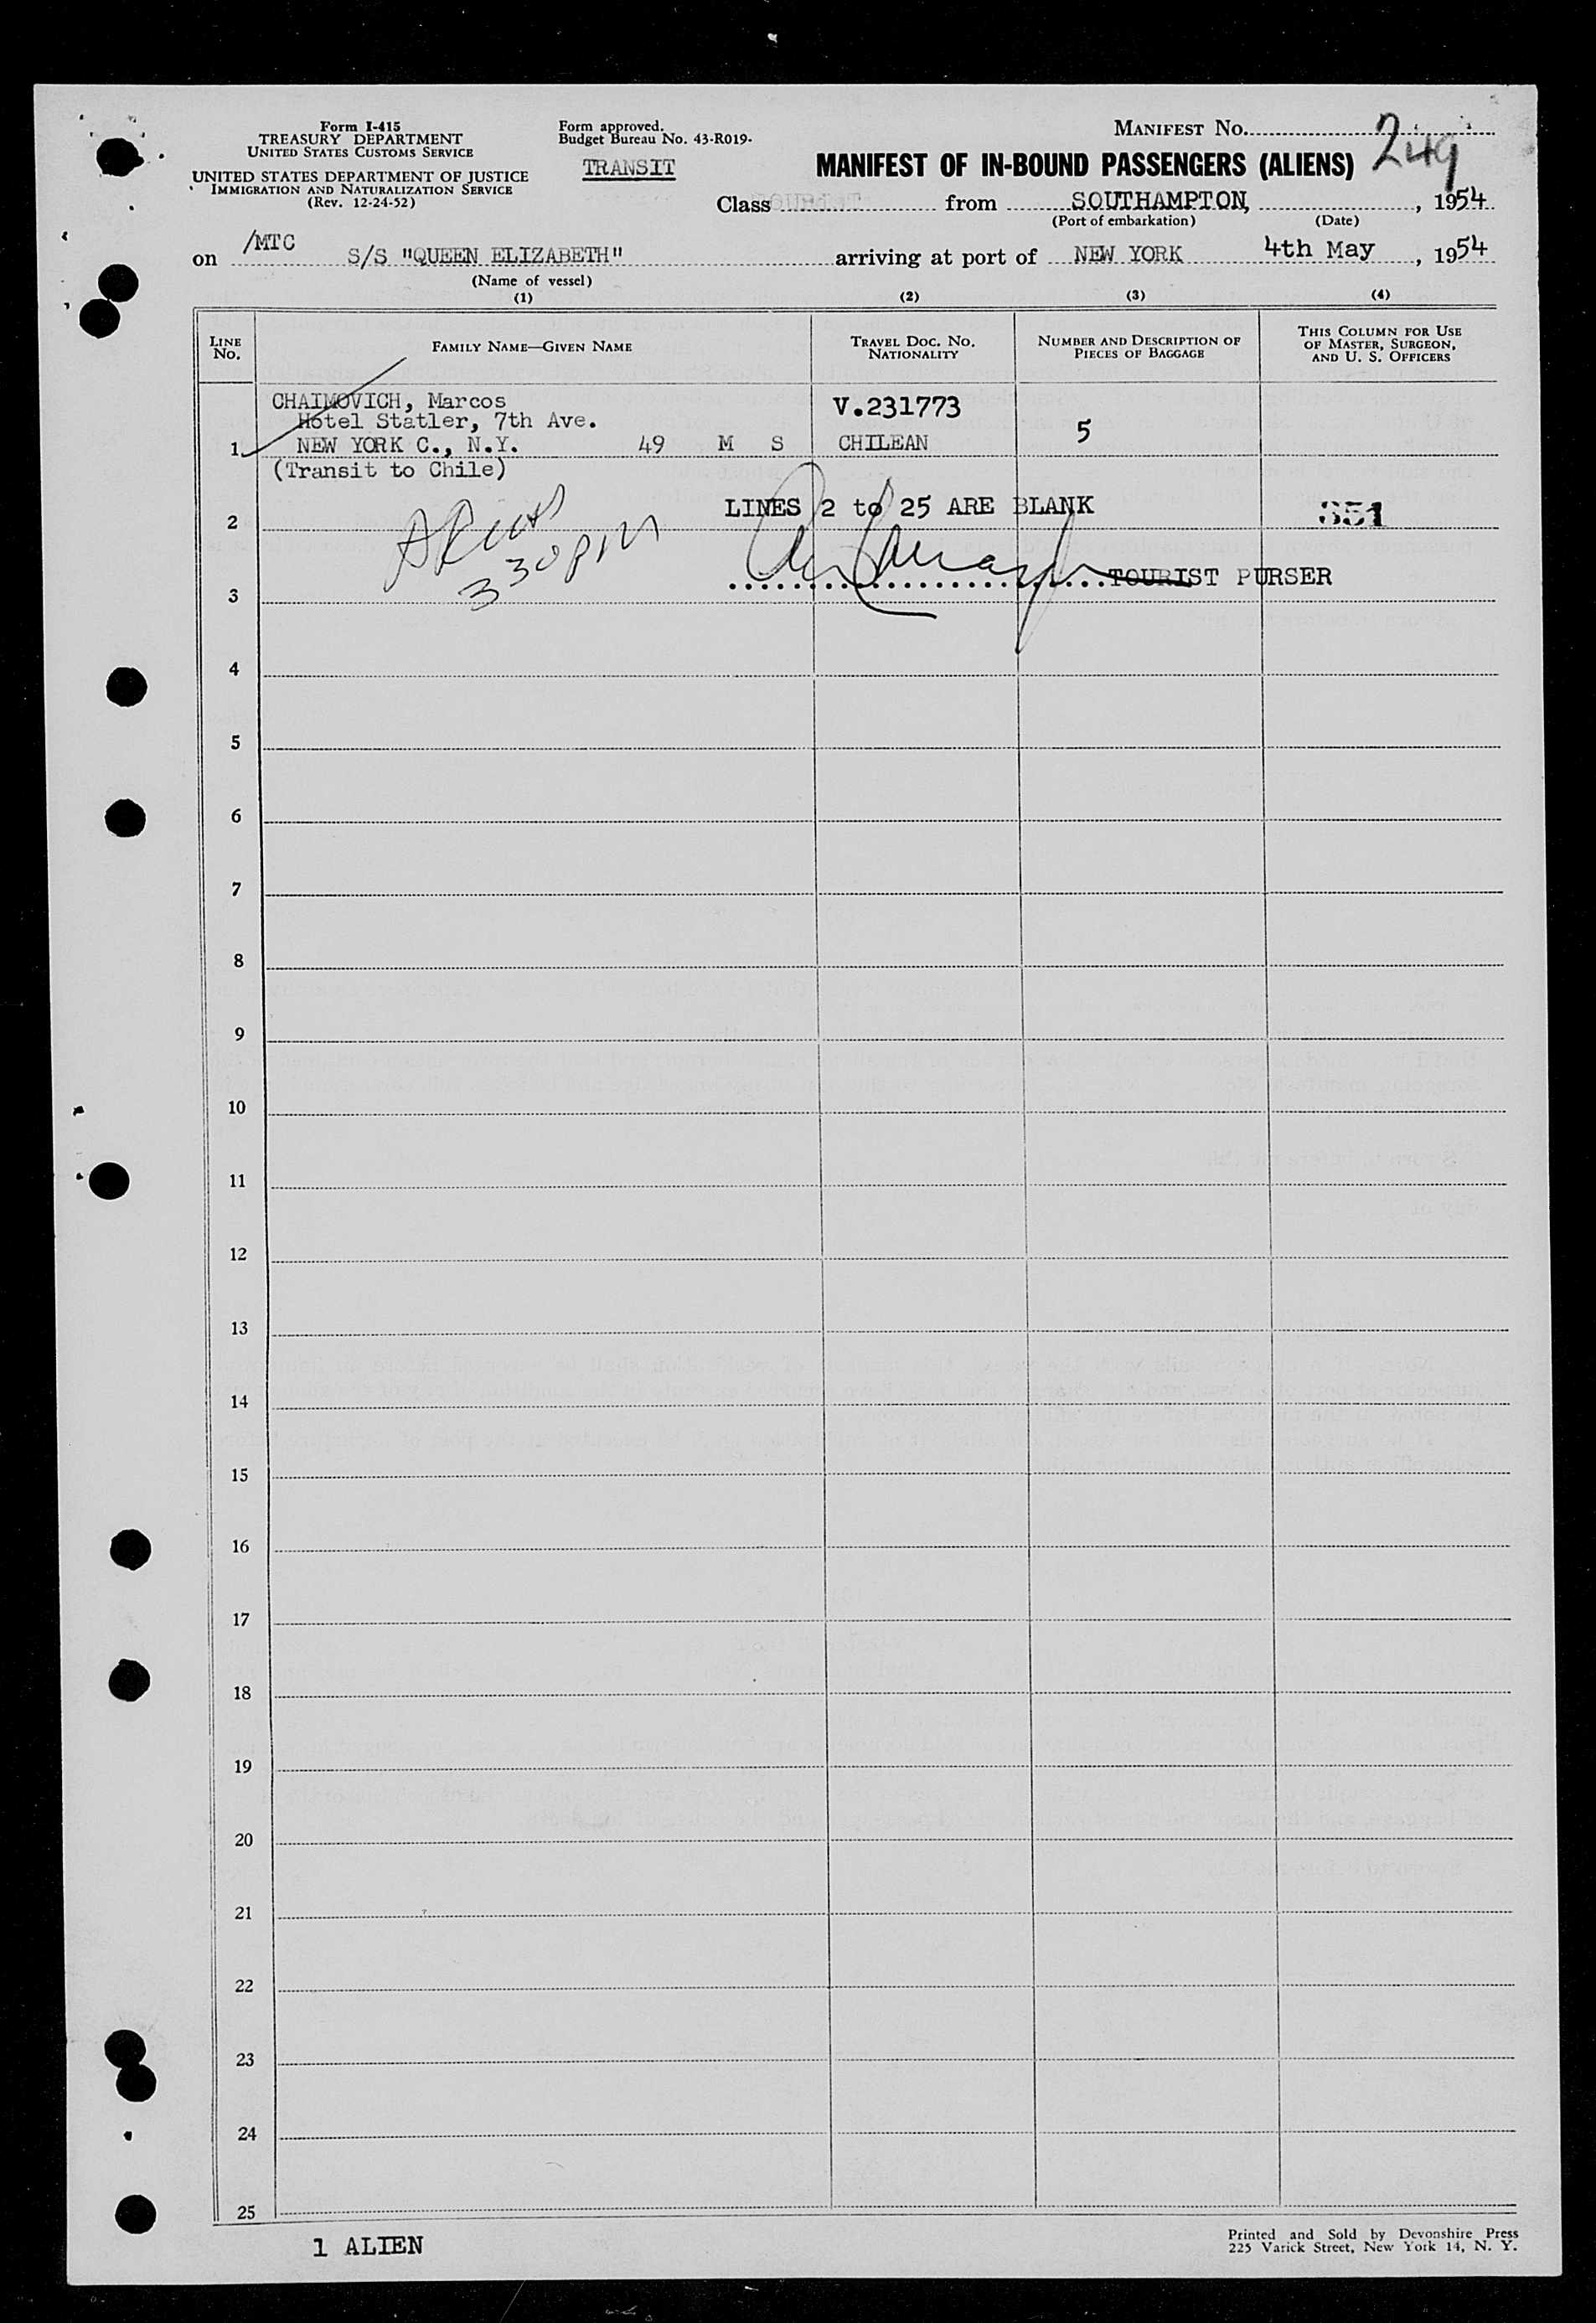 Form I-415
TREASURY DEPARTMENT
UNITED STATES CUSTOMS SERVICE
UNITED STATES DEPARTMENT OF JUSTICE
IMMIGRATION AND NATURALIZATION SERVICE
(Rev. 12-24-52)
Form approved.
Budget Bureau No. 43-R019-
TRANSIT
MANIFEST No. 249
MANIFEST OF IN-BOUND PASSENGERS (ALIENS)
Class from SOUTHAMPTON, , 1954
(Port of embarkation) (Date)
on /MTC S/S "QUEEN ELIZABETH" arriving at port of NEW YORK 4th May , 1954
(Name of vessel)
(1) (2) (3) (4)
LINE No.
FAMILY NAME—GIVEN NAME
TRAVEL DOC. NO. NATIONALITY
NUMBER AND DESCRIPTION OF PIECES OF BAGGAGE
THIS COLUMN FOR USE OF MASTER, SURGEON, AND U. S. OFFICERS
CHAIMOVICH, Marcos V.231773
Hotel Statler, 7th Ave.
1 NEW YORK C., N.Y. 49 M S CHILEAN 5
(Transit to Chile)
LINES 2 to 25 ARE BLANK 351
2
330 PM
TOURIST PURSER
3
4
5
6
7
8
9
10
11
12
13
14
15
16
17
18
19
20
21
22
23
24
25
1 ALIEN
Printed and Sold by Devonshire Press
225 Varick Street, New York 14, N. Y.